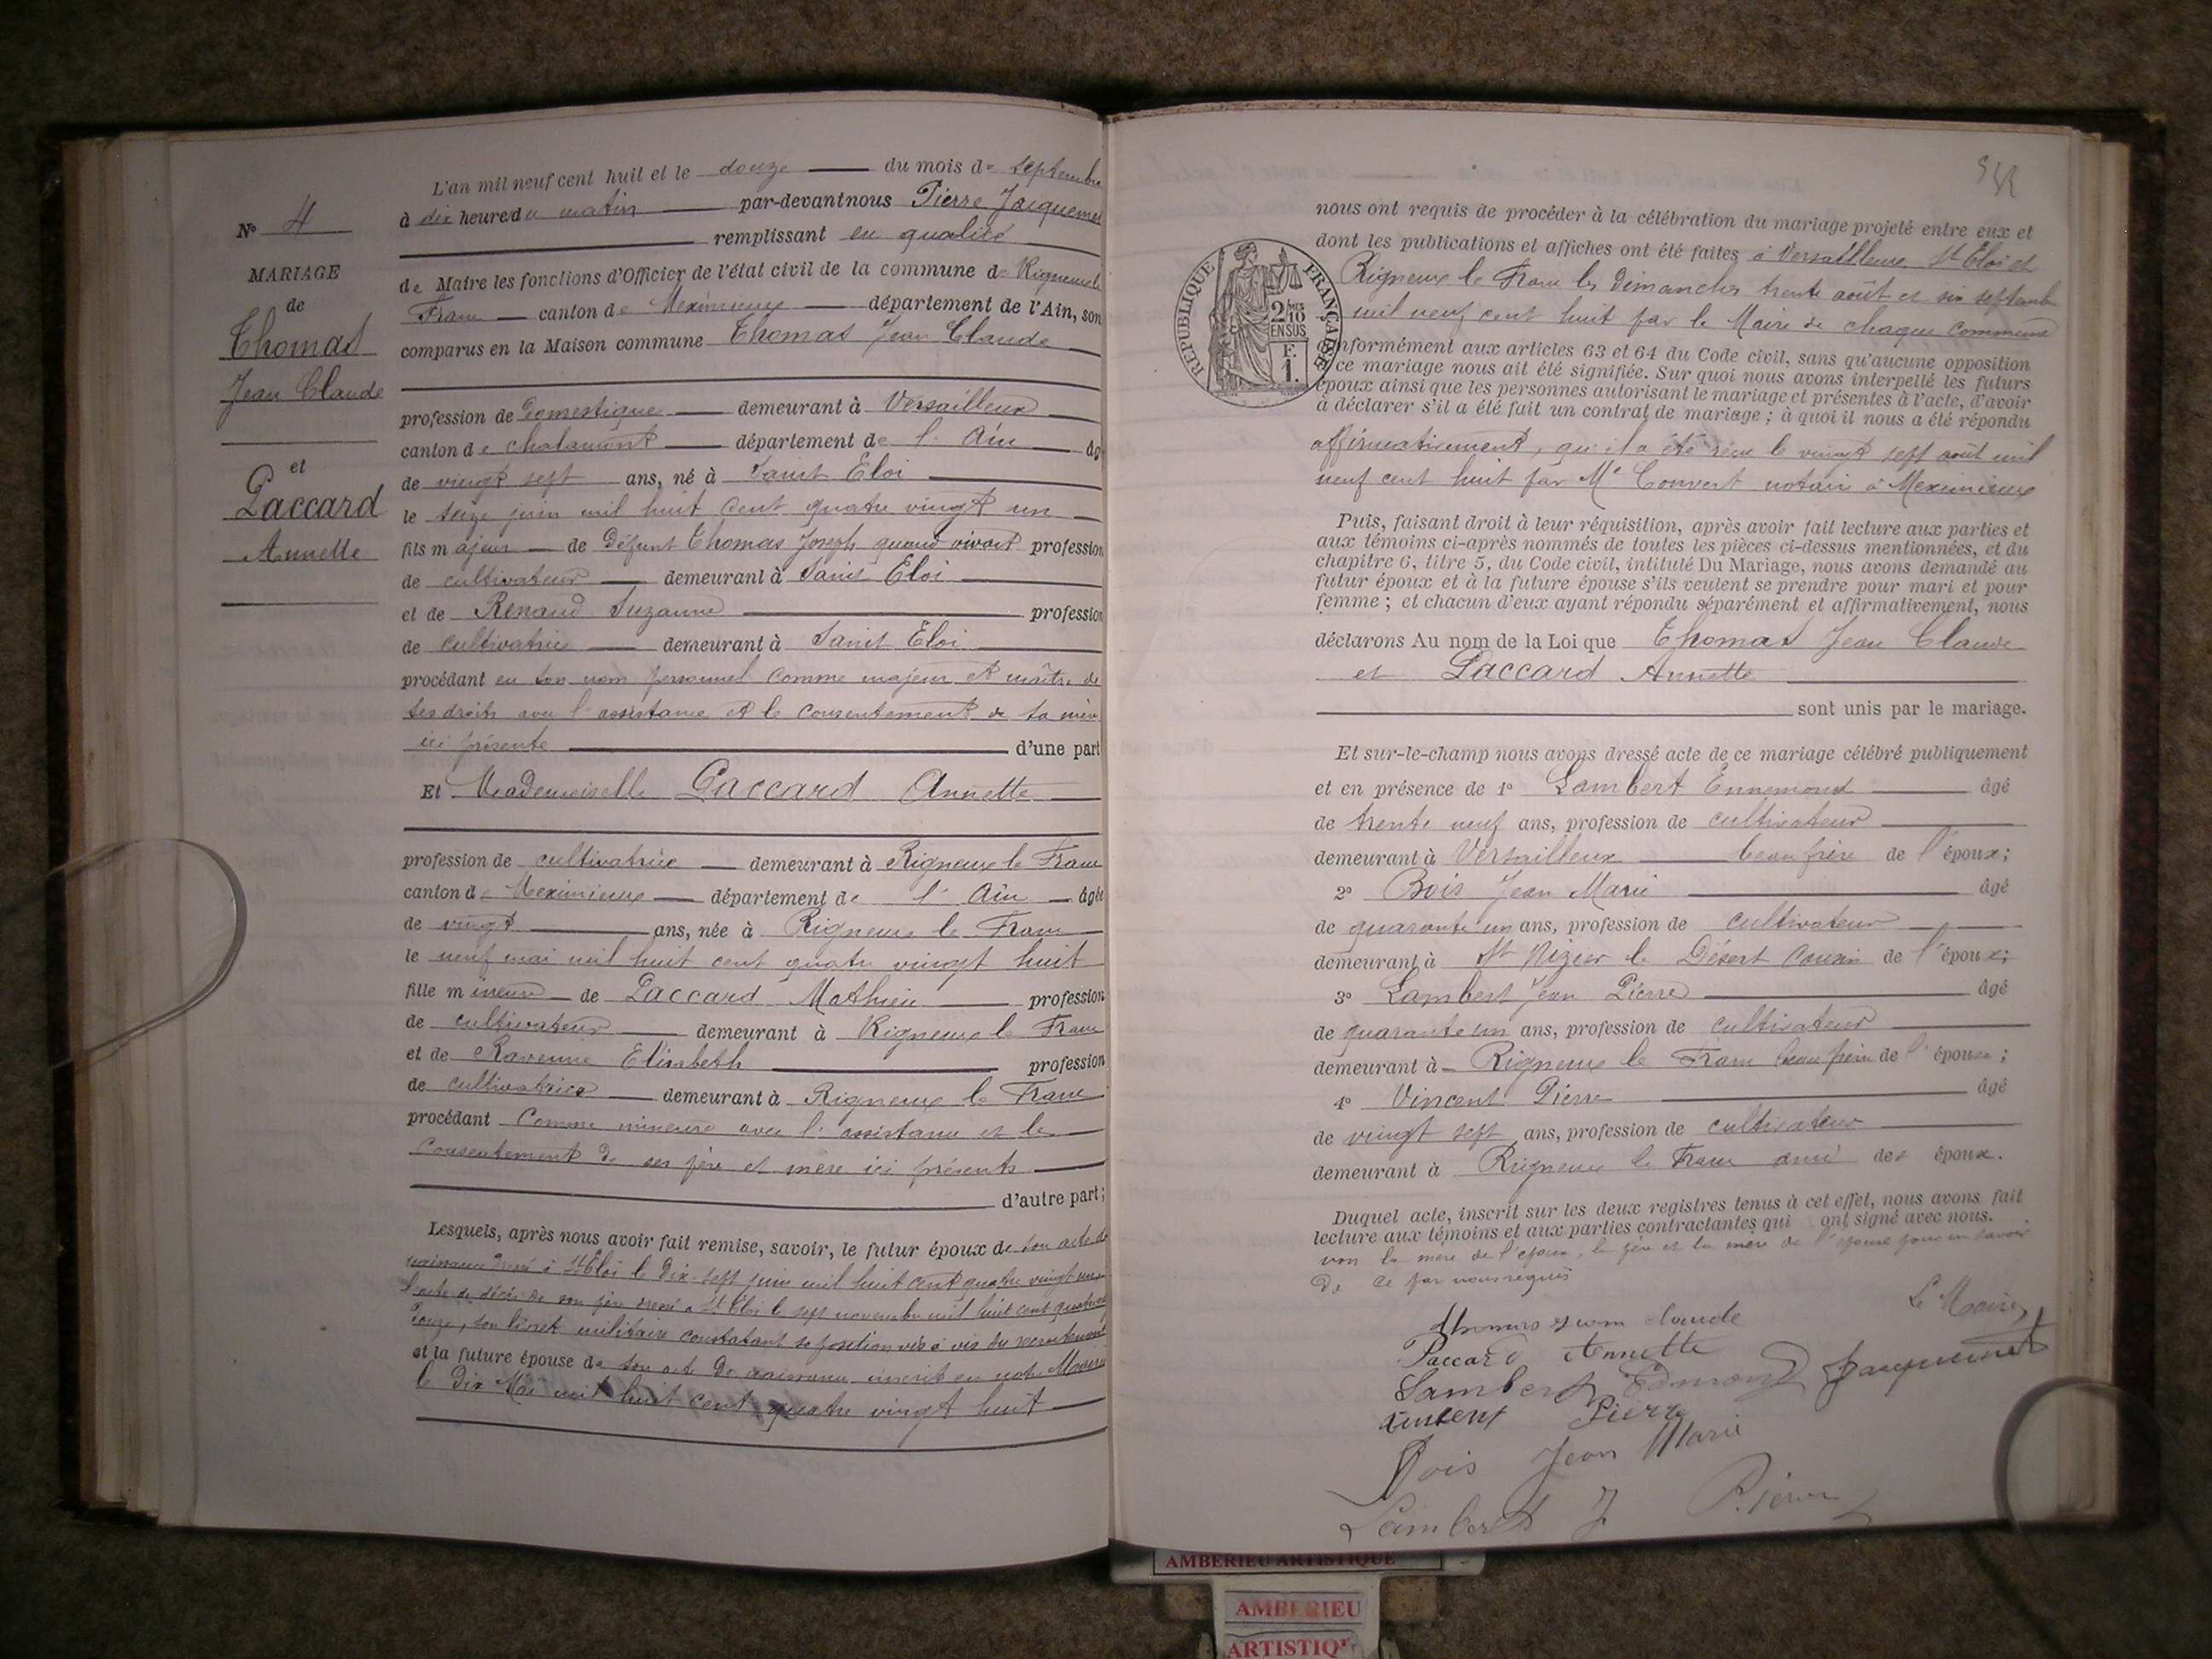 L'an mil neuf cent huit et le douze du mois de septembre
à dix heure du matin par-devant nous Pierre Jacquemet
remplissant en qualité
de Maire les fonctions d'Officier de l'état civil de la commune de Rigneux le
Franc canton de Meximieux département de l'Ain, son
comparus en la Maison commune Thomas Jean Claude
profession de domestique demeurant à Versailleux
canton de chalamont département de l'Ain âg
de vingt sept ans, né à Saint Eloi
le seize juin mil huit cent quatre vingt un
fils majeur de Défunt Thomas Joseph quand vivait profession
de cultivateur demeurant à Saint Eloi
et de Renaud Suzanne profession
de cultivatrice demeurant à Saint Eloi
procédant en son nom personnel comme majeur et maître de
ses droits avec l'assistance et le consentement de sa mère
ici présente d'une part
Et Mademoiselle Paccard Annette
profession de cultivatrice demeurant à Rigneux le Franc
canton de Meximieux département de l'Ain âgée
de vingt ans, née à Rigneux le Franc
le neuf mai mil huit cent quatre vingt huit
fille mineure de Paccard Mathieu profession
de cultivateur demeurant à Rigneux le Franc
et de Elisabeth profession
de cultivatrice demeurant à Rigneux le Franc
procédant comme mineure avec l'assistance et le
consentement de ses père et mère ici présents
d'autre part;
Lesquels, après nous avoir fait remise, savoir, le futur époux de son acte de
naissance dressé à St Eloi le dix-sept juin mil huit cent quatre vingt un,
l'acte de décès de son père dressé à St Eloi le sept novembre mil huit cent quatre
douze, son livret militaire constatant sa position vis à vis du recrutement
et la future épouse de son acte de naissance inscrit en notre Mairie
le dix Mai mil huit cent quatre vingt huit
N° 4
MARIAGE
de
Thomas
Jean Claude
et
Paccard
Annette
nous ont requis de procéder à la célébration du mariage projeté entre eux et
dont les publications et affiches ont été faites à Versailleux, St Eloi et
Rigneux le Franc les Dimanches trente août et six septembre
mil neuf cent huit par le Maire de chaque commune
conformément aux articles 63 et 64 du Code civil, sans qu'aucune opposition
à ce mariage nous ait été signifiée. Sur quoi nous avons interpellé les futurs
époux ainsi que les personnes autorisant le mariage et présentes à l'acte, d'avoir
à déclarer s'il a été fait un contrat de mariage ; à quoi il nous a été répondu
affirmativement, qu'il a été reçu le vingt sept août mil
neuf cent huit par Me Convert notaire à Meximieux
Puis, faisant droit à leur réquisition, après avoir fait lecture aux parties et
aux témoins ci-après nommés de toutes les pièces ci-dessus mentionnées, et du
chapitre 6, titre 5, du Code civil, intitulé Du Mariage, nous avons demandé au
futur époux et à la future épouse s'ils veulent se prendre pour mari et pour
femme ; et chacun d'eux ayant répondu séparément et affirmativement, nous
déclarons Au nom de la Loi que Thomas Jean Claude
et Paccard Annette
sont unis par le mariage.
Et sur-le-champ nous avons dressé acte de ce mariage célébré publiquement
et en présence de 1° Lambert Ennemond âgé
de trente neuf ans, profession de cultivateur
demeurant à Versailleux beau frère de l'époux;
2° Bois Jean Marie âgé
de quarante un ans, profession de cultivateur
demeurant à St Nizier le Désert cousin de l'époux;
3° Lambert Jean Pierre âgé
de quarante un ans, profession de cultivateur
demeurant à Rigneux le Franc beau frère de l'épouse;
4° Vincent Pierre âgé
de vingt sept ans, profession de cultivateur
demeurant à Rigneux le Franc ami des époux.
Duquel acte, inscrit sur les deux registres tenus à cet effet, nous avons fait
lecture aux témoins et aux parties contractantes qui ont signé avec nous.
non la mère de l'époux, le père et la mère de l'épouse pour un savoir
De ce par nous requis
Le Maire,
Thomas Jean claude
Paccard Annette
Lambert Edmond Jacquemet
Vincent Pierre
Bois Jean Marie
Lambert J Pierre
RÉPUBLIQUE FRANÇAISE
2/10
EN SUS
F.
1.
AMBERIEU ARTISTIQUE
AMBERIEU
ARTISTIQ